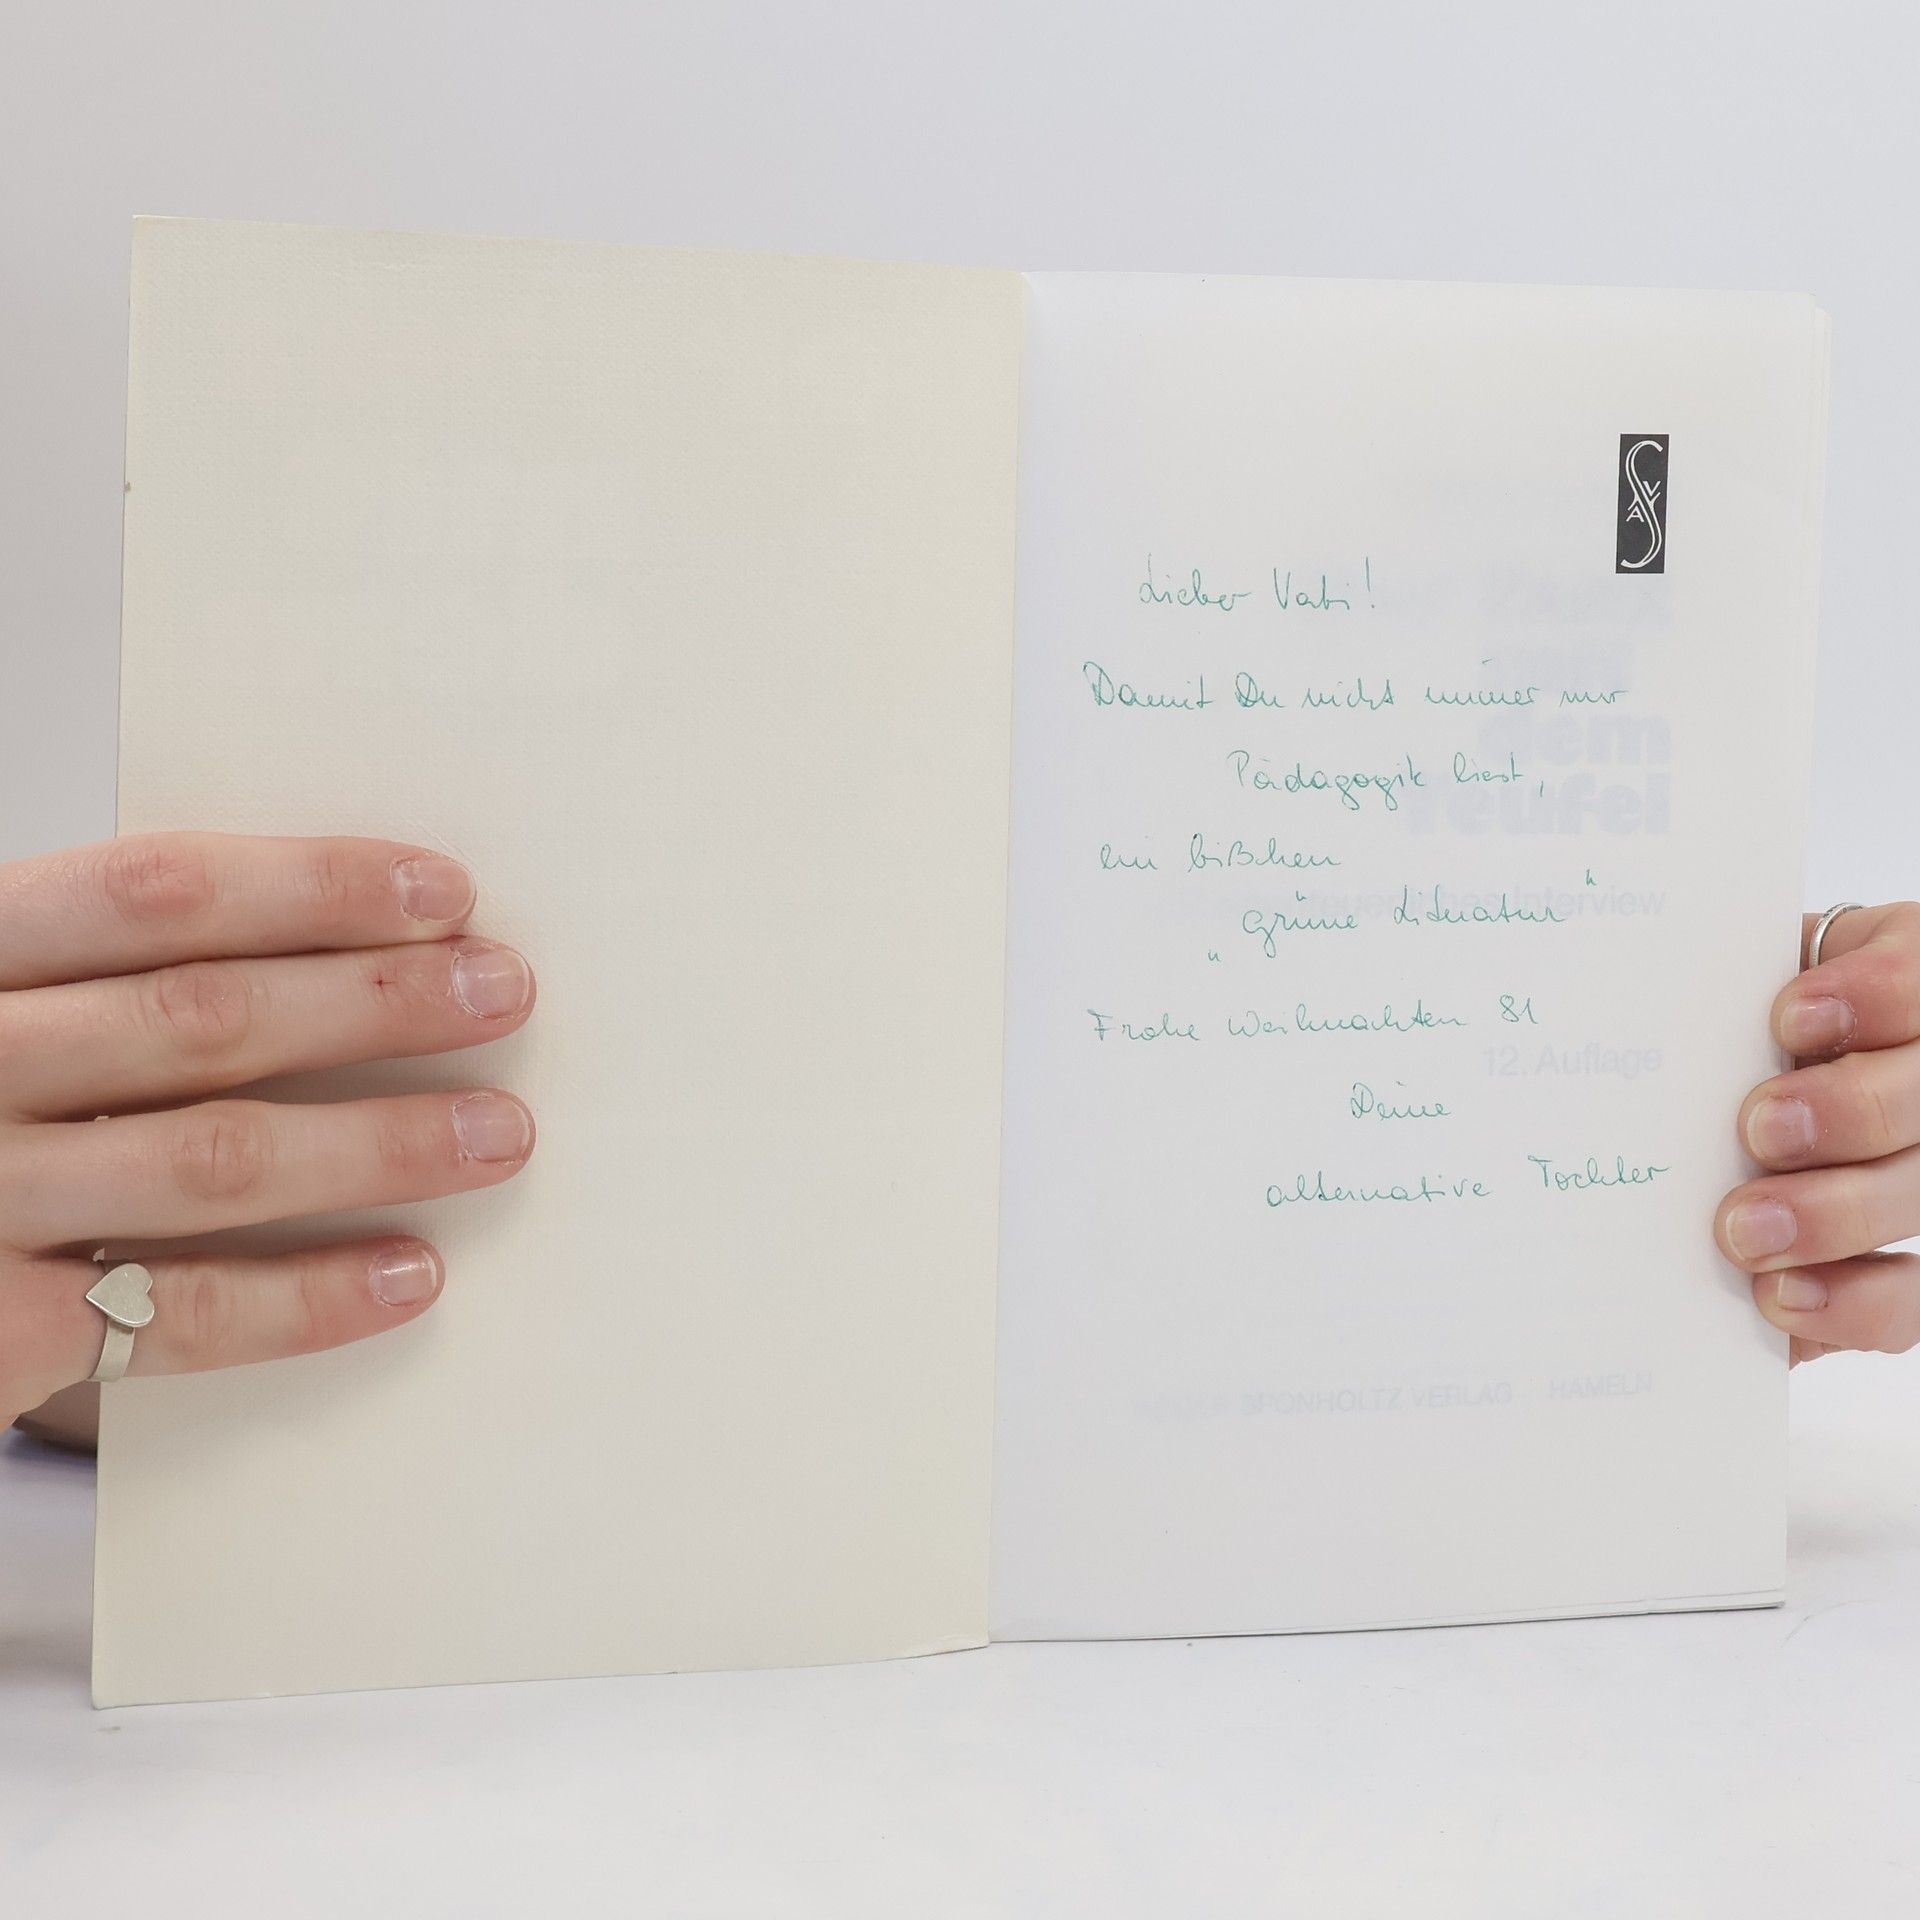 SVA
Lieber Vati!
Damit Du nicht immer nur
Pädagogik liest,
ein bißchen
„grüne Literatur“
Frohe Weihnachten 81
Deine
alternative Tochter
dem
Teufel
Interview
12. Auflage
SPONHOLTZ VERLAG HAMELN